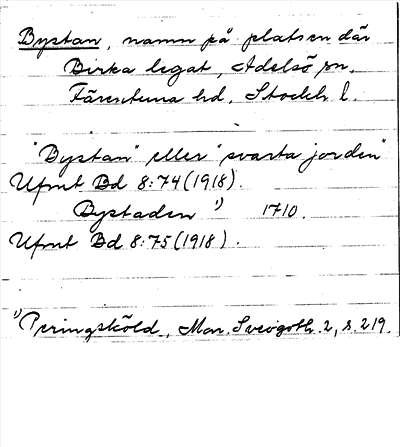 Bystan, namn på platsen där
Birka legat, Adelsö sn,
Färentuna hd, Stockh. l.
"Bystan" eller "svarta jorden"
Ufmt Bd 8:74 (1918).
Bystaden ¹) 1710.
Ufmt Bd 8:75 (1918).
¹) Peringsköld, Mon. Sveogoth. 2, s. 219.